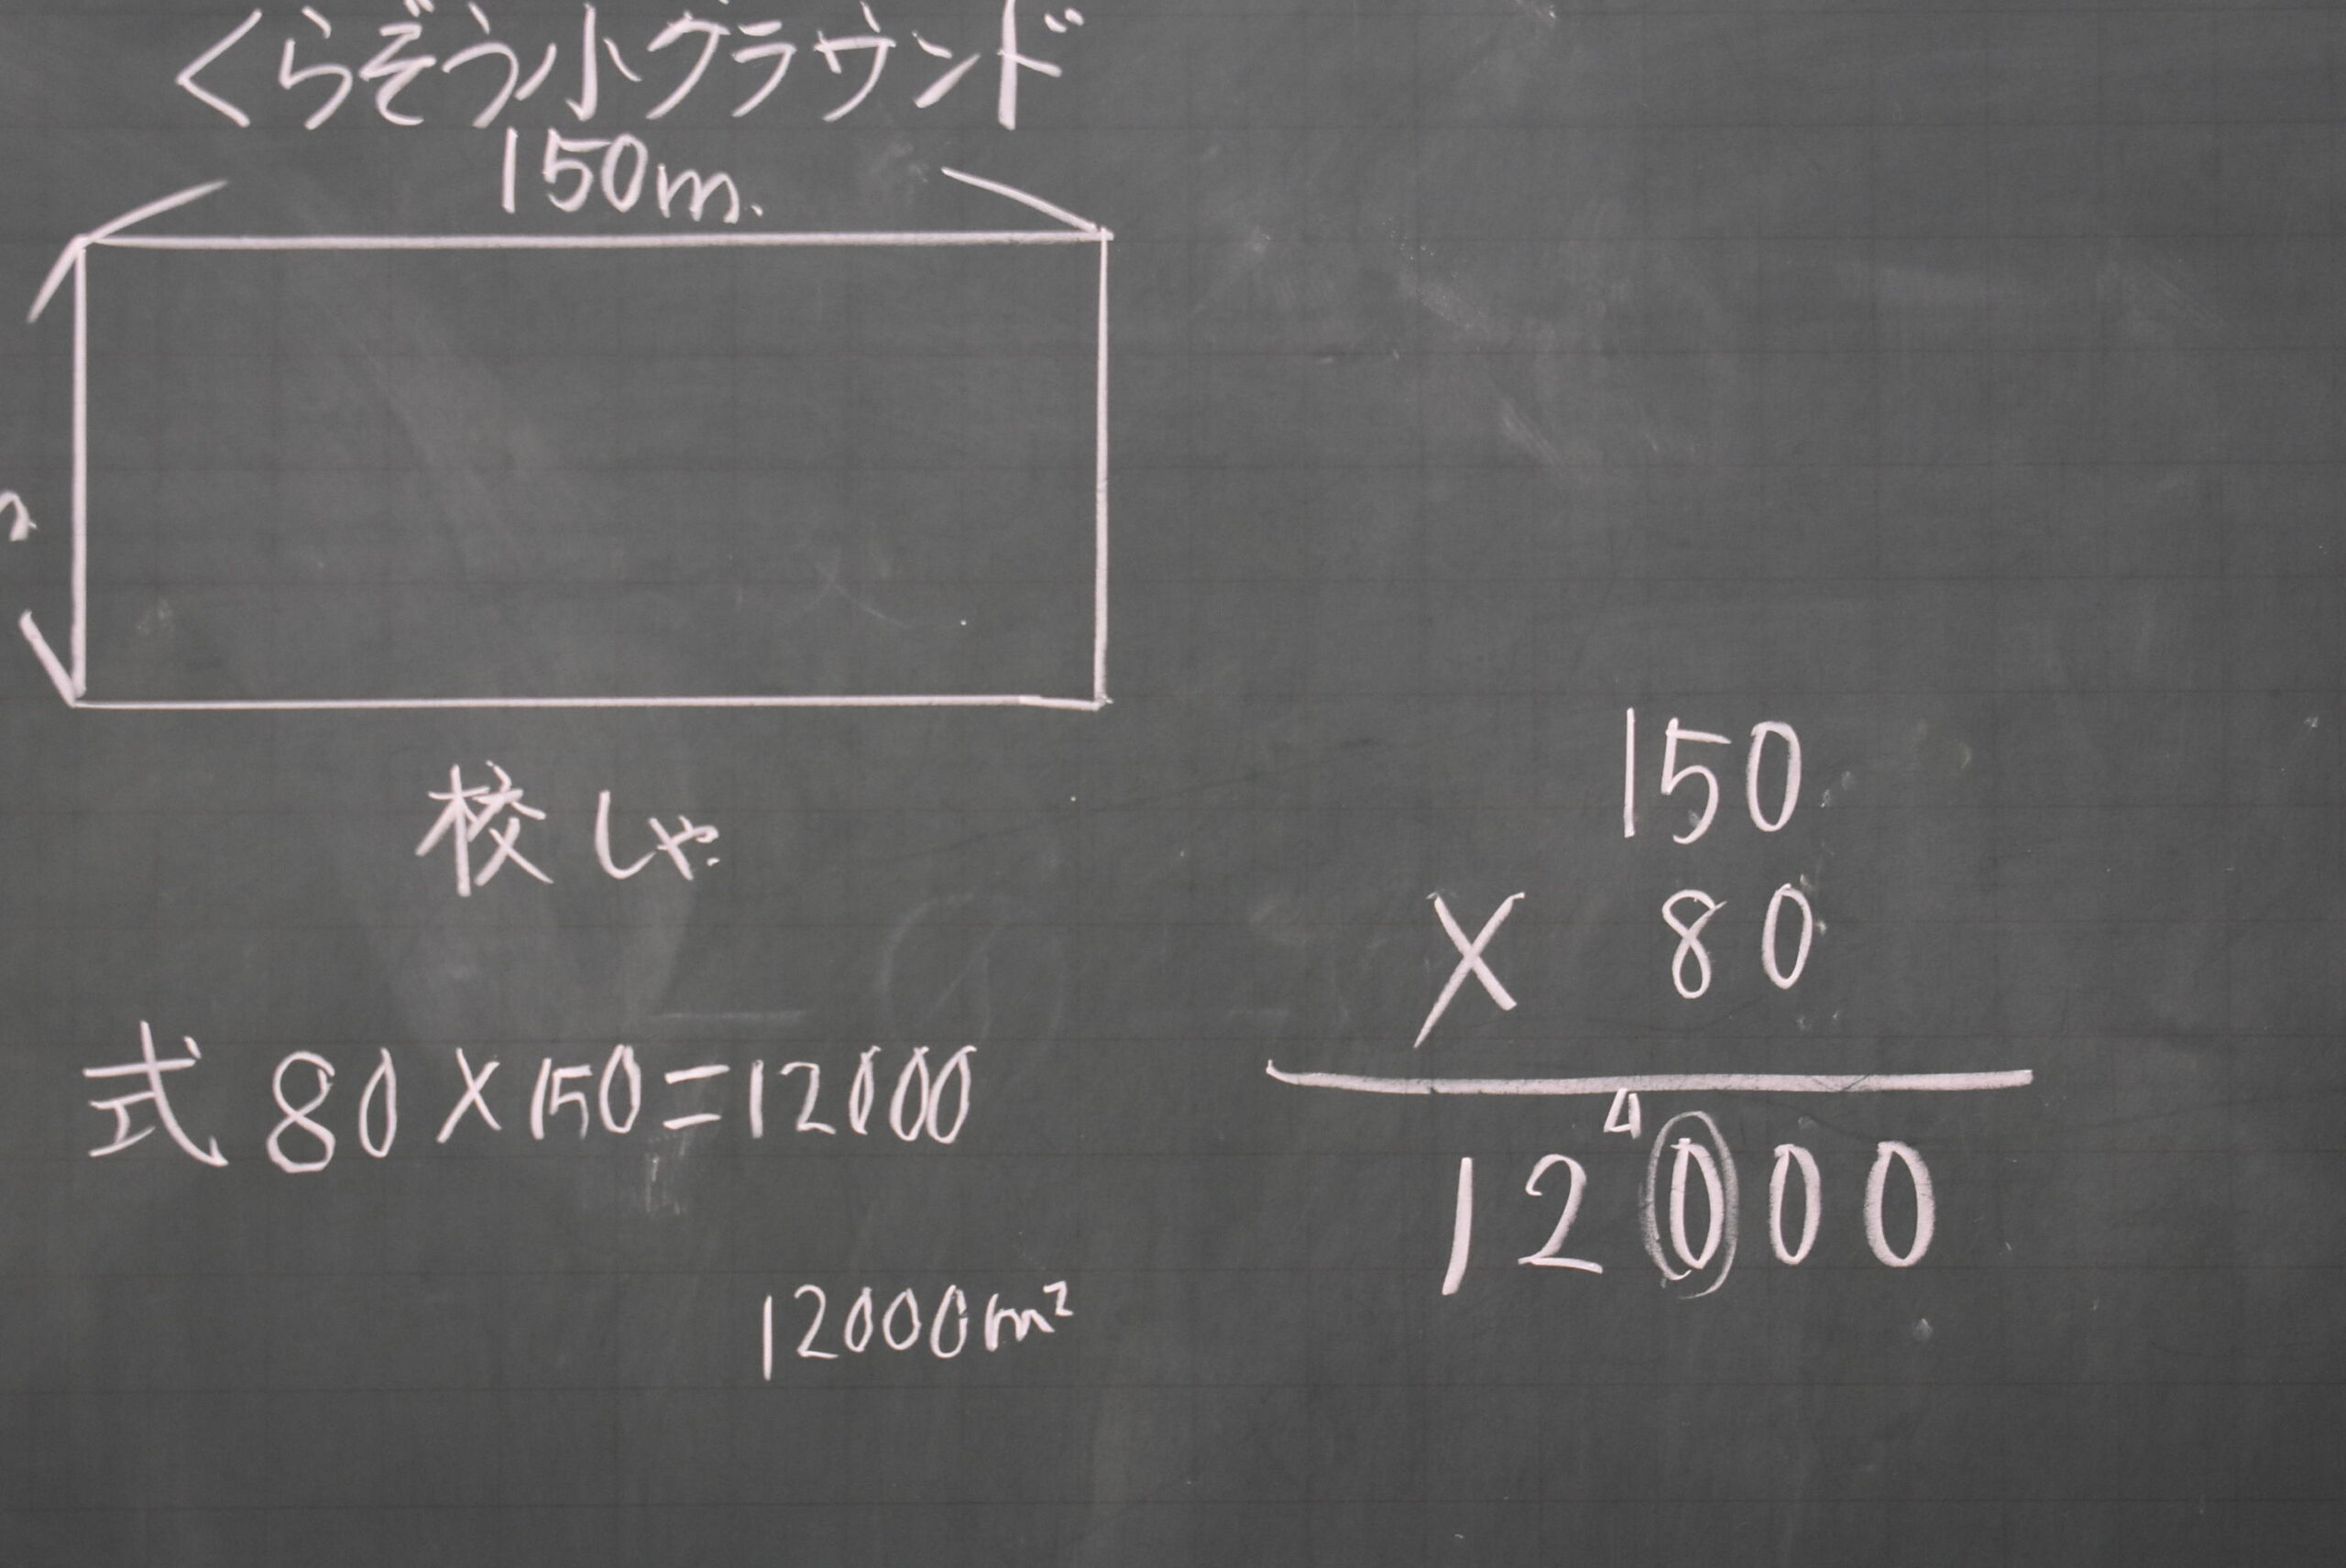 くらぞう小グラウンド
150m.
m
校しゃ
式 80×150=12000
12000m²
150
× 80
4
12000